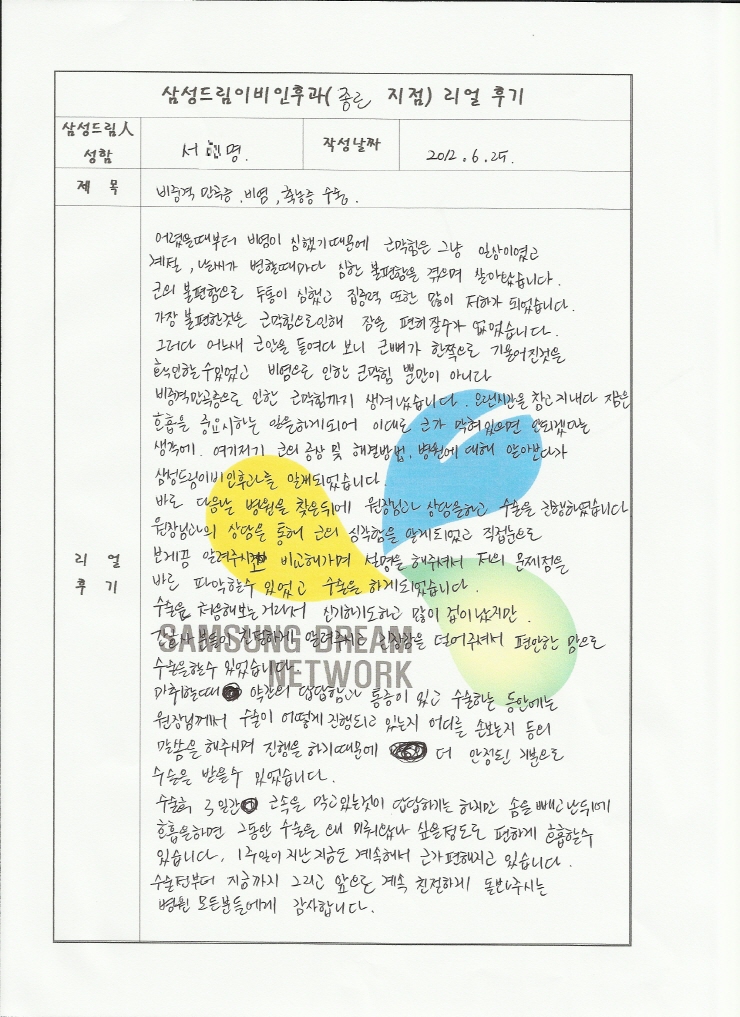 삼성드림이비인후과(종로 지점) 리얼 후기
삼성드림人 성함
서 명.
작성날짜
2012.6.25.
제 목
비중격 만곡증, 비염, 축농증 수술.
리 얼 후 기
어렸을때부터 비염이 심했기때문에 코막힘은 그냥 일상이였고
계절, 날씨가 변할때마다 심한 불편함을 겪으며 살아왔습니다.
코의 불편함으로 두통이 심했고 집중력 또한 많이 저하가 되었습니다.
가장 불편한것은 코막힘으로인해 잠을 편히잘수가 없었습니다.
그러다 어느새 코안을 들여다 보니 코뼈가 한쪽으로 기울어진것을
확인할수있었고 비염으로 인한 코막힘 뿐만이 아니라
비중격만곡증으로 인한 코막힘까지 생겨났습니다. 오랜시간을 참고지내다 지금은
호흡을 중요시하는 일을하게되어 이대로 코가 막혀있으면 안되겠다는
생각에. 여기저기 코의 증상 및 해결방법, 병원에 대해 알아보다가
삼성드림이비인후과를 알게되었습니다.
바로 다음날 병원을 찾은뒤에 원장님과 상담을하고 수술을 진행하였습니다
원장님과의 상담을 통해 코의 심각함을 알게되었고 직접눈으로
보게끔 알려주시고 비교해가며 설명을 해주셔서 저의 문제점을
바로 파악할수 있었고 수술을 하게되었습니다.
수술을 처음해보는거라서 신기하기도하고 많이 겁이났지만.
간호사 분들이 친절하게 알려주시고 긴장감을 덜어주셔서 편안한 맘으로
수술을할수 있었습니다.
마취할때 약간의 답답함과 통증이 있고 수술하는 동안에는
원장님께서 수술이 어떻게 진행되고 있는지 어디를 손보는지 등의
말씀을 해주시며 진행을 하기때문에 더 안정된 기분으로
수술을 받을수 있었습니다.
수술후 3일간 코속을 막고있는것이 답답하기는 하지만 솜을 빼고난뒤에
호흡을하면 그동안 수술을 왜 미뤄왔나 싶을정도로 편하게 호흡할수
있습니다. 1주일이 지난지금도 계속해서 코가편해지고 있습니다.
수술전부터 지금까지 그리고 앞으로 계속 친절하게 돌봐주시는
병원 모든분들에게 감사합니다.
SAMSUNG DREAM
NETWORK